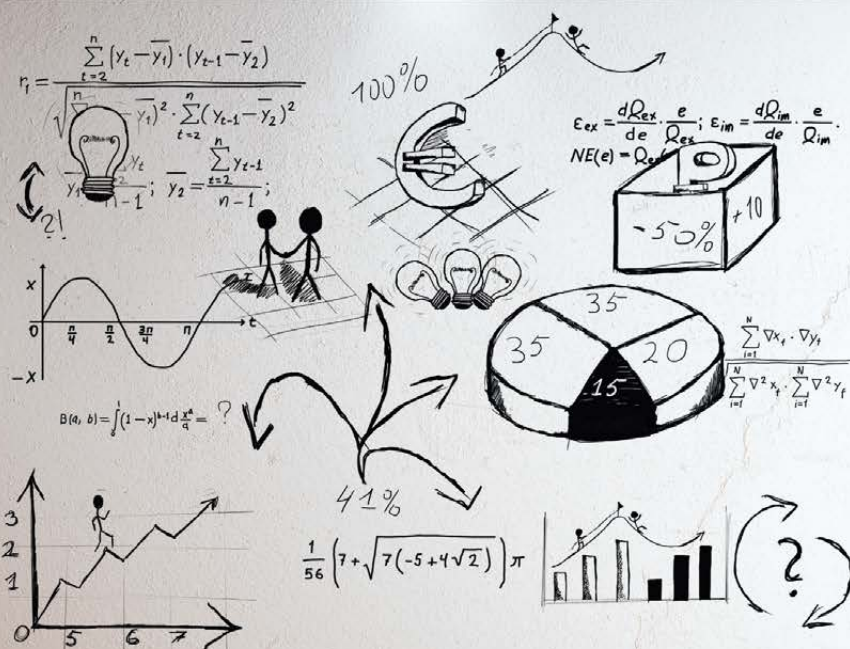 r₁ = ∑ₜ₌₂ⁿ (yₜ − y̅₁) · (yₜ₋₁ − y̅₂)
y̅₁)² · ∑ₜ₌₂ⁿ (yₜ₋₁ − y̅₂)²
yₜ
n − 1 ; y̅₂ = ∑ₜ₌₂ⁿ yₜ₋₁ / n − 1 ;
?!
100%
εex = dΩex/de · e/Ωex ; εim = dΩim/de · e/Ωim.
NE(e) = Ωex
-50%
+10
x
0 π/4 π/2 3π/4 π t
−x
35
35
20
15
∑ᵢ₌₁ᴺ ∇xₜ · ∇yₜ
√∑ᵢ₌₁ᴺ ∇²xₜ · ∑ᵢ₌₁ᴺ ∇²yₜ
B(a, b) = ∫₀¹ (1 − x)ᵇ⁻¹ d xᵃ/a = ?
41%
1/56 (7 + √7(−5 + 4√2)) π
3
2
1
0 5 6 7
?